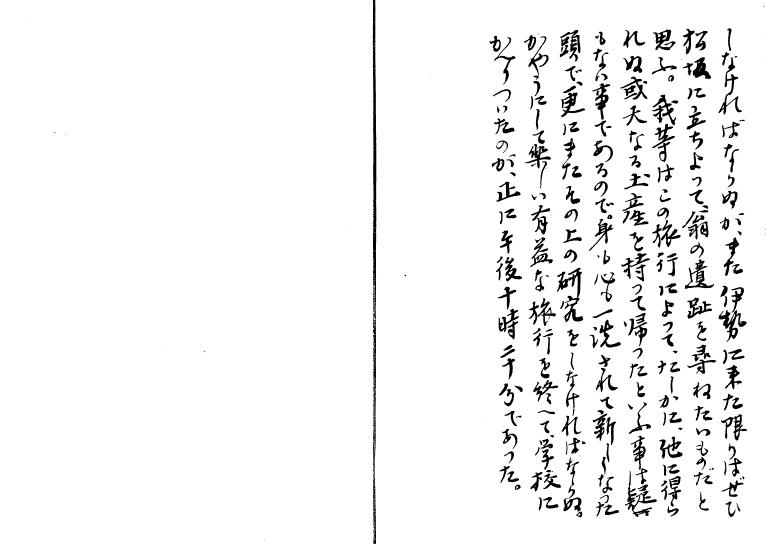 しなければならぬが、また伊勢に来た限りはぜひ
松坂に立ちよって、翁の遺趾を尋ねたいものだと
思ふ。我等はこの旅行によって、たしかに、他に得ら
れぬ或大なる土産を持って帰ったといふ事は疑
もない事であるので。身も心も一洗されて新しくなった
頭で、更にまたその上の研究をしなければならぬ。
かやうにして楽しい有益な旅行を終へて、学校に
かへりついたのが、正に午後十時二十分であった。